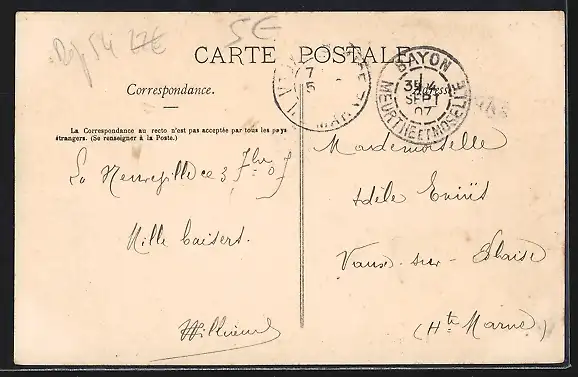 Dép 54 27€
5€
CARTE POSTALE
Correspondance.
Adresse
La Correspondance au recto n'est pas acceptée par tous les pays
étrangers. (Se renseigner à la Poste.)
BAYON
SEPT
07
MEURTHE ET MOSELLE
7
5
MARNE
La Neuveville ce 3 7bre 07
Mille baisers.
Mademoiselle
Adèle
Vaux-sur-Blaise
(Hte Marne)